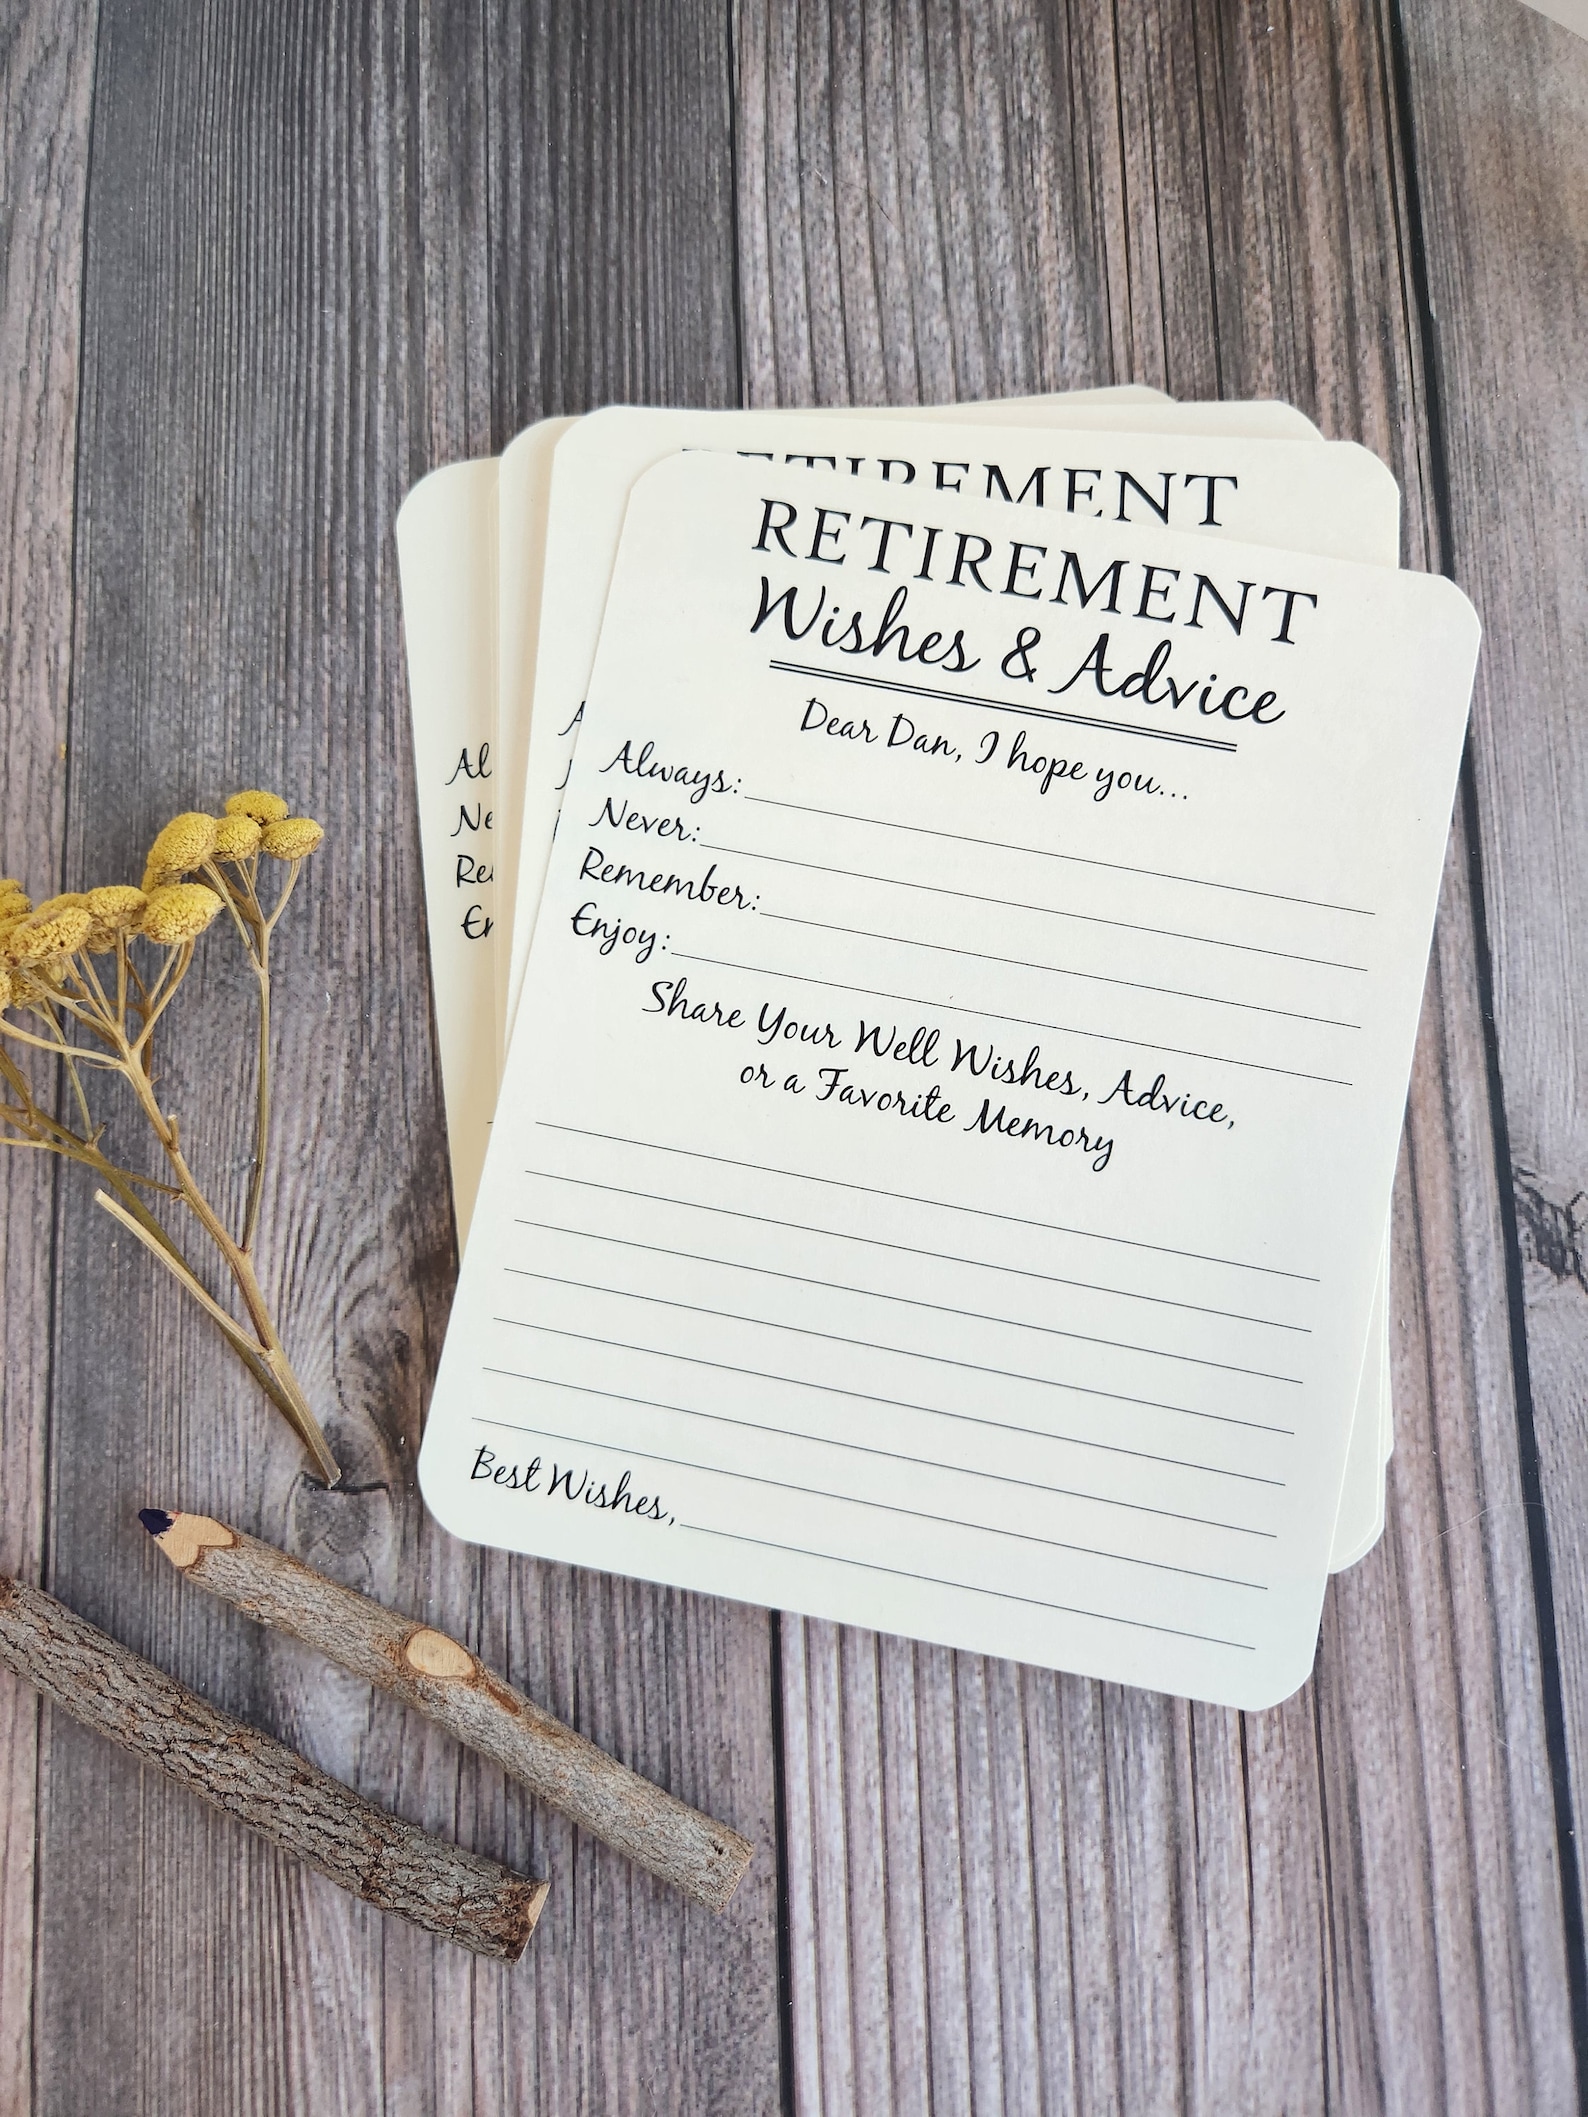 RETIREMENT
RETIREMENT
Wishes & Advice
Dear Dan, I hope you...
Always:
Never:
Remember:
Enjoy:
Share Your Well Wishes, Advice,
or a Favorite Memory
Best Wishes,
Al
Ne
Re
En